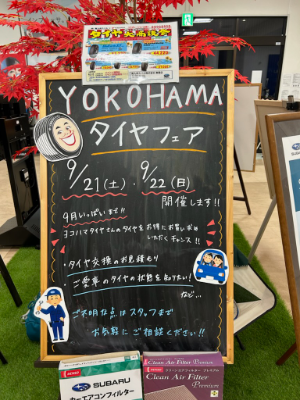 YOKOHAMA
タイヤフェア
9/21(土)・9/22(日)
開催します!!
9月いっぱいまで!!
ヨコハマタイヤさんのタイヤをお得にお買い求め
いただくチャンス!!
・タイヤ交換のお見積もり
・ご愛車のタイヤの状態を知りたい!
など…
ご不明な点はスタッフまで
お気軽にご相談ください!!
SUBARU
カーエアコンフィルター
Clean Air Filter Premium
Clean Air Filter
Premium